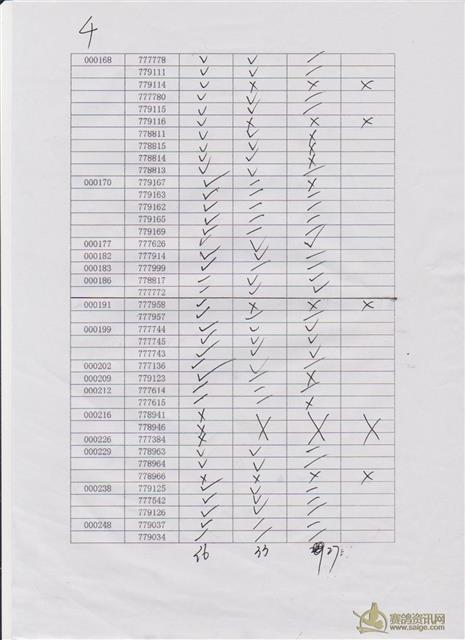 4
000168 777778 ✓ ✓ –
779111 ✓ ✓ –
779114 ✓ × × ×
777780 ✓ ✓ –
779115 ✓ ✓ –
779116 ✓ × × ×
778811 ✓ ✓ ×
778815 ✓ ✓ ×
778814 ✓ ✓ ×
778813 ✓ ✓ –
000170 779167 ✓ – ×
779163 ✓ – –
779162 ✓ – –
779165 ✓ – –
779169 ✓ – –
000177 777626 ✓ ✓ ✓
000182 777914 ✓ ✓ –
000183 777999 ✓ – –
000186 778817 – ✓ ✓
777772 – ✓ ✓
000191 777958 ✓ × × ×
777957 ✓ ✓ –
000199 777744 ✓ ✓ ✓
777745 ✓ ✓ ✓
777743 ✓ ✓ ✓
000202 777136 ✓ ✓ –
000209 779123 ✓ – ×
000212 777614 – – –
777615 – – ×
000216 778941 ×
778946 × × × ×
000226 777384 ×
000229 778963 ✓ ✓ –
778964 ✓ ✓ –
778966 × × × ×
000238 779125 ✓ ✓ –
777542 ✓ ✓ –
779126 ✓ ✓ –
000248 779037 ✓ – –
779034 – – –
36 33 27
赛鸽资讯网
www.saige.com